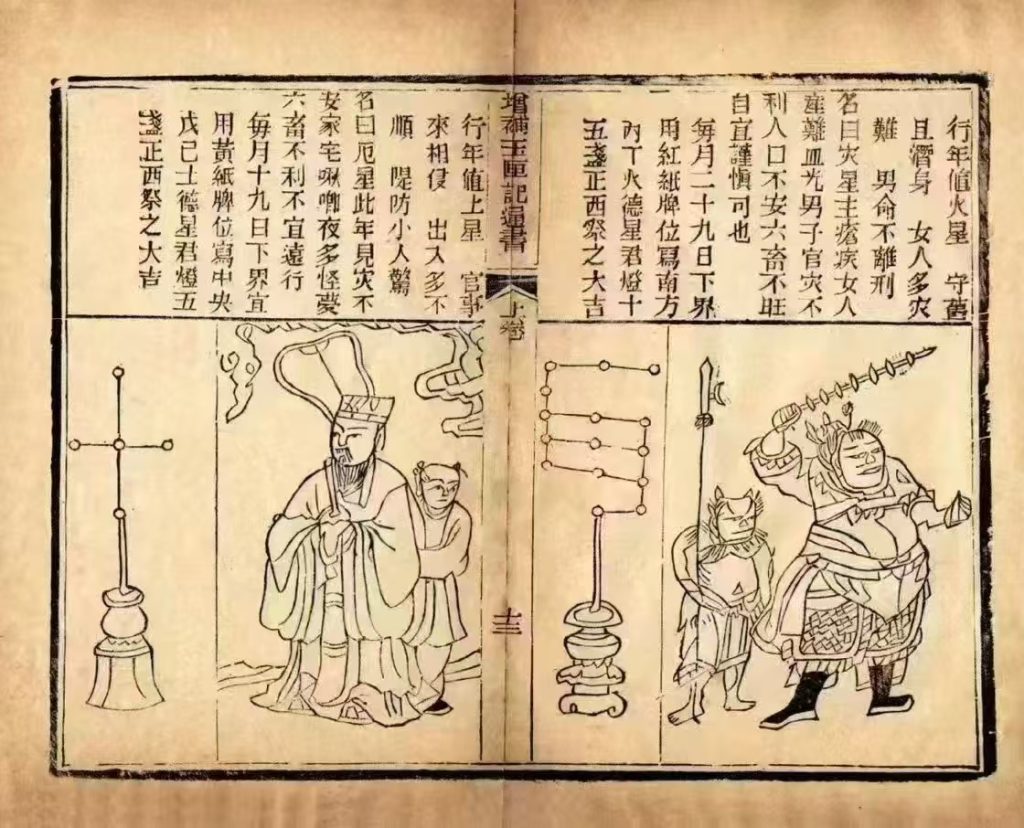 行年值火星 守舊
且潛身 女人多灾
難 男命不離刑
名曰灾星主瘡疾女人
產難血光男子官灾不
利人口不安六畜不旺
自宜謹慎可也
每月二十九日下界
用紅紙牌位寫南方
丙丁火德星君燈十
五盞正西祭之大吉
增補玉匣記通書
上卷
十三
行年值上星 官事
來相侵 出入多不
順 隄防小人驚
名曰厄星此年見灾不
安家宅啾唧夜多怪夢
六畜不利不宜遠行
每月十九日下界宜
用黃紙牌位寫中央
戊己土德星君燈五
盞正西祭之大吉